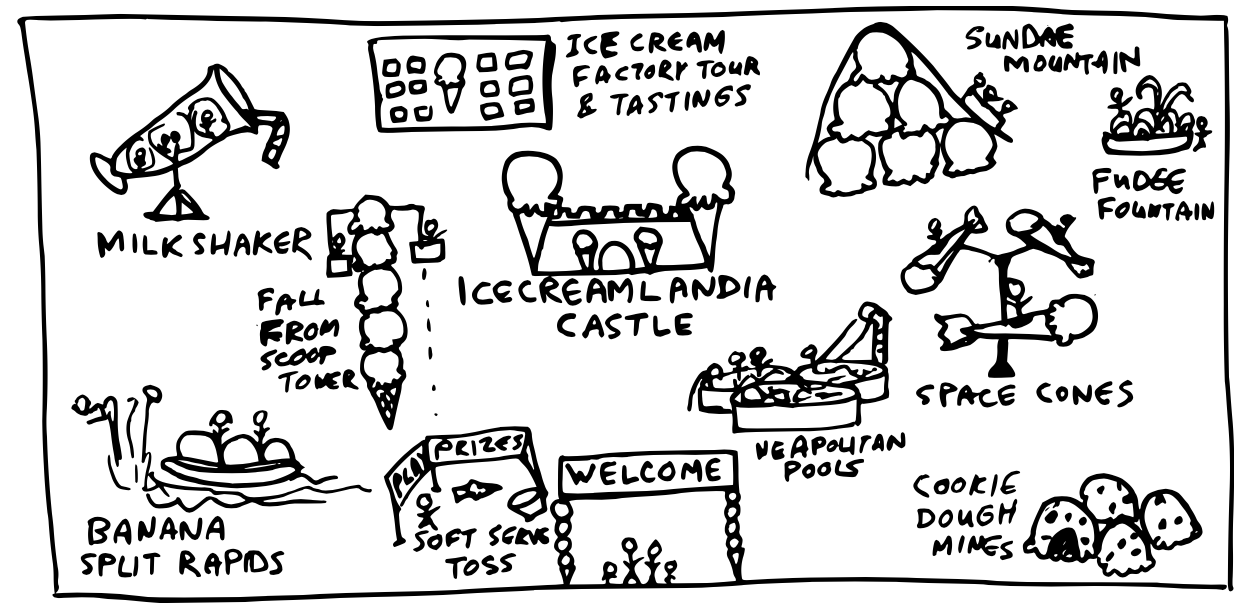 ICE CREAM
FACTORY TOUR
& TASTINGS
SUNDAE
MOUNTAIN
FUDGE
FOUNTAIN
MILK SHAKER
ICECREAMLANDIA
CASTLE
FALL
FROM
SCOOP
TOWER
SPACE CONES
NEAPOLITAN
POOLS
BANANA
SPLIT RAPIDS
PLAY
PRIZES
SOFT SERVE
TOSS
WELCOME
COOKIE
DOUGH
MINES